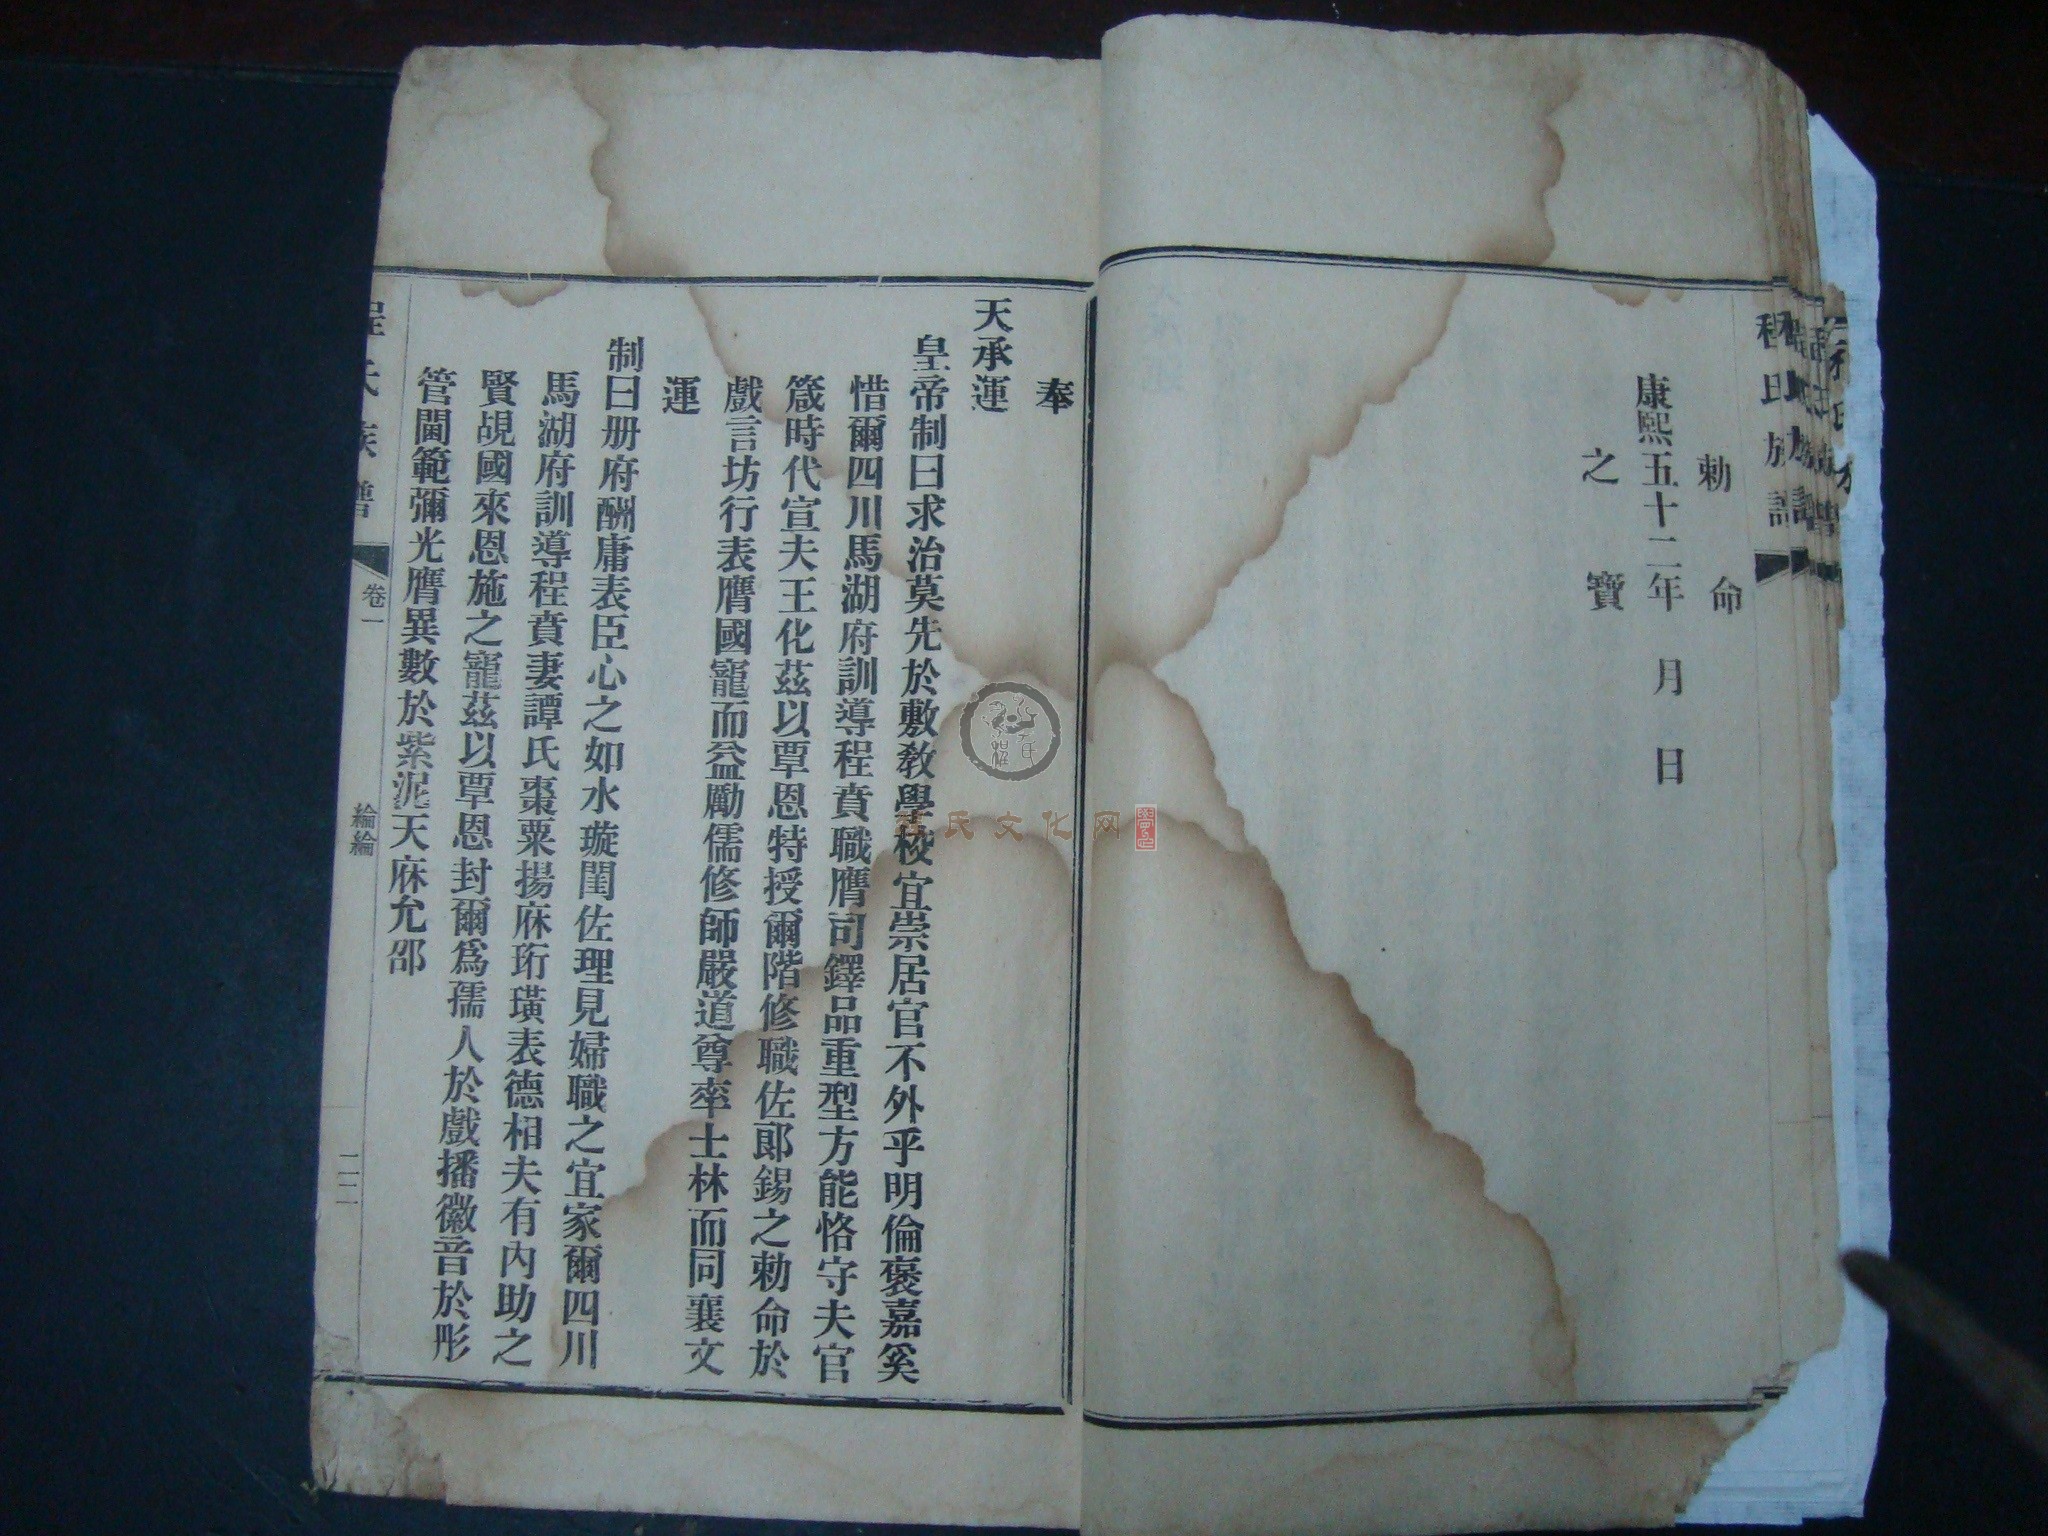 勅命
康熙五十二年 月 日
之寶
奉
天承運
皇帝制曰求治莫先於敷教學校宜崇居官不外乎明倫褒嘉奚
惜爾四川馬湖府訓導程賁職膺司鐸品重型方能恪守夫官
箴時代宣夫王化茲以覃恩特授爾階修職佐郎錫之勅命於
戲言坊行表膺國寵而益勵儒修師嚴道尊率士林而同襄文
運
制曰册府酬庸表臣心之如水璇閨佐理見婦職之宜家爾四川
馬湖府訓導程賁妻譚氏棗粟揚庥珩璜表德相夫有內助之
賢覘國來恩施之寵茲以覃恩封爾爲孺人於戲播徽音於彤
管閫範彌光膺異數於紫泥天庥允邵
程氏族譜 卷一 綸綸 二二
程氏族譜
程氏文化网